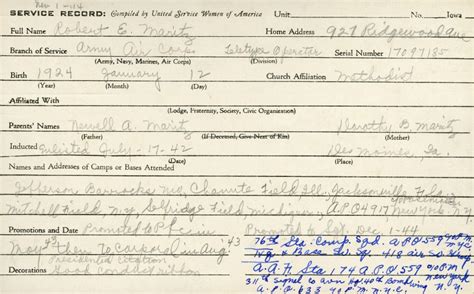 Nov 1-44
SERVICE RECORD: Compiled by United Service Women of America Unit: No. Iowa
Full Name Robert E. Maritz Home Address 927 Ridgewood Ave
Branch of Service Army Air Corps Teletype Operator Serial Number 17097185
(Army, Navy, Marines, Air Corps) (Division)
Birth 1924 January 12 Church Affiliation Methodist
(Year) (Month) (Day)
Affiliated With
(Lodge, Fraternity, Society, Civic Organization)
Parents' Names Newell A. Maritz Dorothy B. Maritz
(Father) (If Deceased, Give Next of Kin) (Mother)
Inducted Enlisted July-17-42 Des Moines, Ia.
(Date) (Place)
Names and Addresses of Camps or Bases Attended
Jefferson Barracks Mo, Chanute Field Ill, Jacksonville Fla
Mitchell Field N.Y, Selfridge Field Michigan, A.P.O 4917 New York N.Y.
Promotions and Date Promoted to Pfc in Promoted to Sgt. Dec 1-44
May 43 then to Corporal in Aug. 43 76th Sta. Comp. Sqd. A.P.O. 559 N.Y.
Presidential Citation Hq & Base Sv. Sqd. 418 air
Decorations Good conduct ribbon A.A.F. Sta 174 A.P.O 559 New York
311th signal Hq 40th Bomb Wing
A.P.O. 633 N.Y.